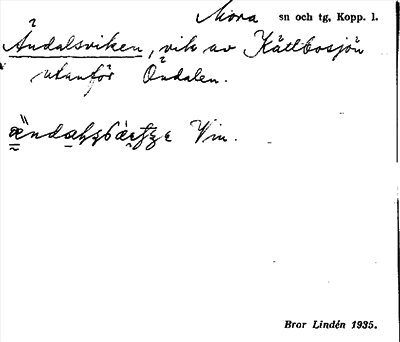 Mora sn och tg, Kopp. l.
Åndalsviken, vik av Kättbosjön
utanför Åndalen.
Vin.
Bror Lindén 1935.